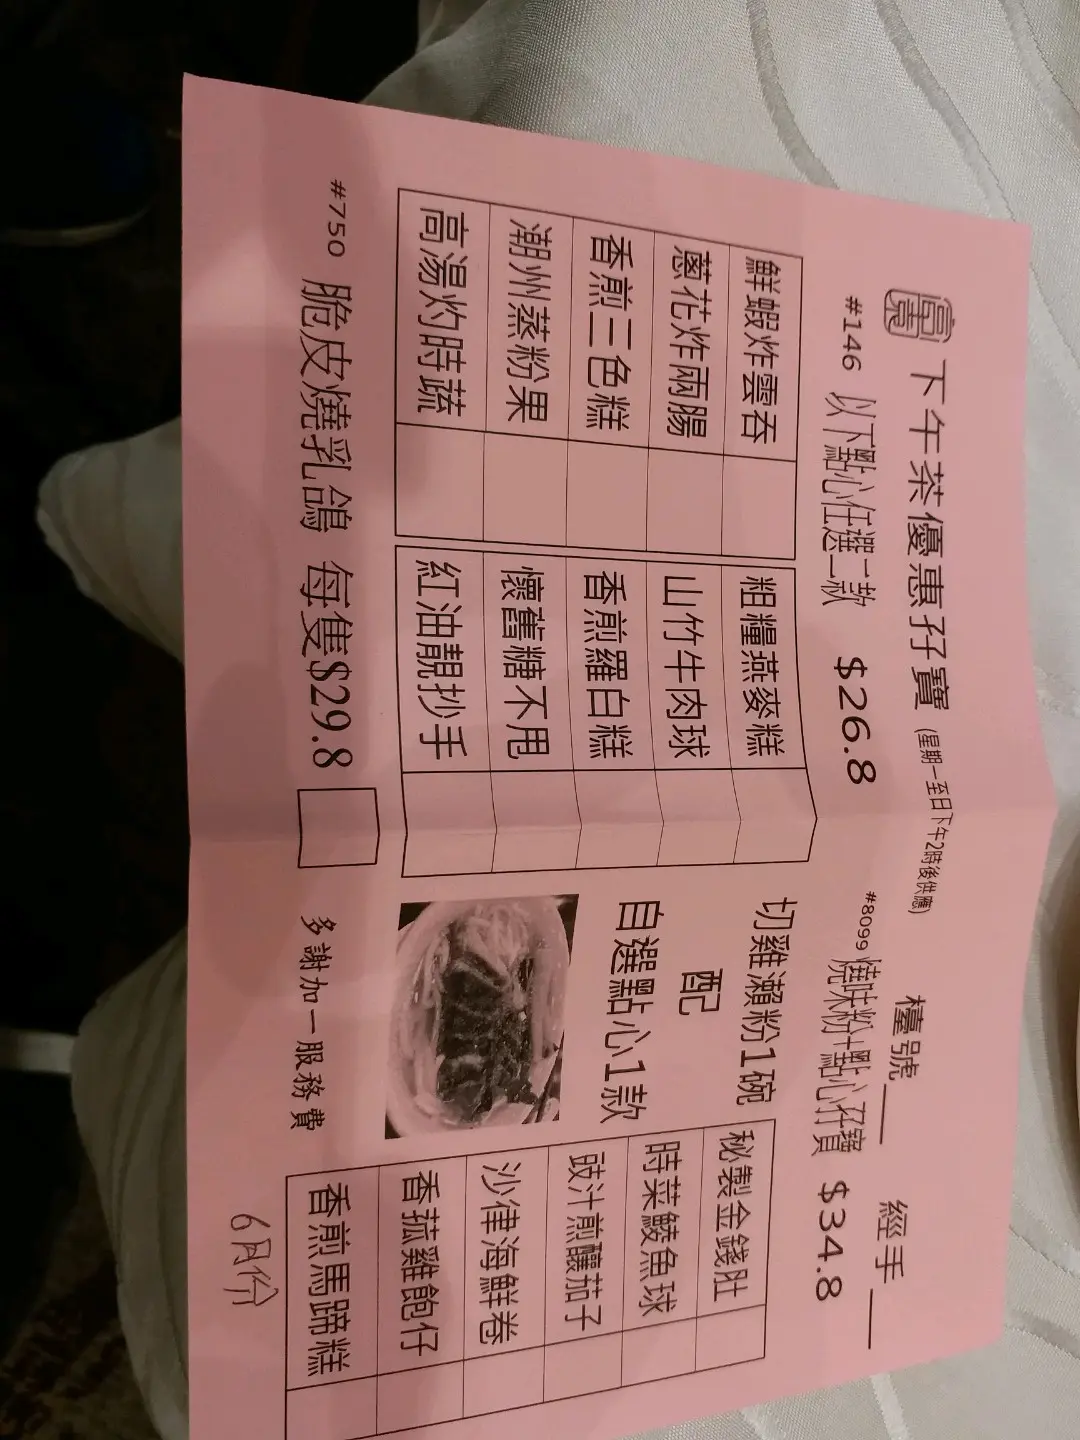 下午茶優惠孖寶 (星期一至日下午2時後供應) 檯號 經手
#146 以下點心任選二款 $26.8
鮮蝦炸雲吞 粗糧燕麥糕
蔥花炸兩腸 山竹牛肉球
香煎三色糕 香煎羅白糕
潮州蒸粉果 懷舊糖不甩
高湯灼時蔬 紅油靚抄手
#750 脆皮燒乳鴿 每隻$29.8
#8099 燒味粉+點心孖寶 $34.8
切雞瀨粉1碗
配
自選點心1款
秘製金錢肚
時菜鯪魚球
豉汁煎釀茄子
沙律海鮮卷
香菰雞飽仔
香煎馬蹄糕
多謝加一服務費
6月份